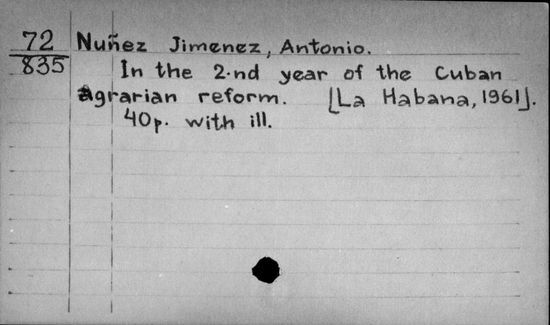 72 Nuñez Jimenez, Antonio.
835 In the 2.nd year of the Cuban
agrarian reform. [La Habana, 1961].
40p. with ill.